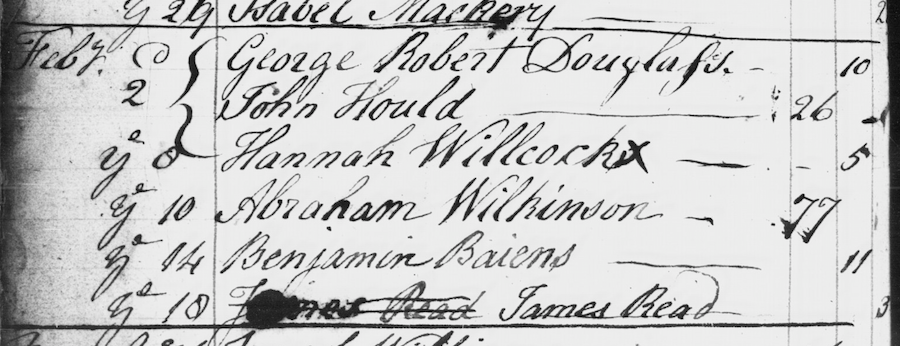 yᵉ 29 Isabel Mackery 2
Feby. George Robert Douglass. 10
2 John Hould 26
yᵉ 8 Hannah Willcock 5
yᵉ 10 Abraham Wilkinson 77
yᵉ 14 Benjamin Baiens 11
yᵉ 18 James Read James Read 3